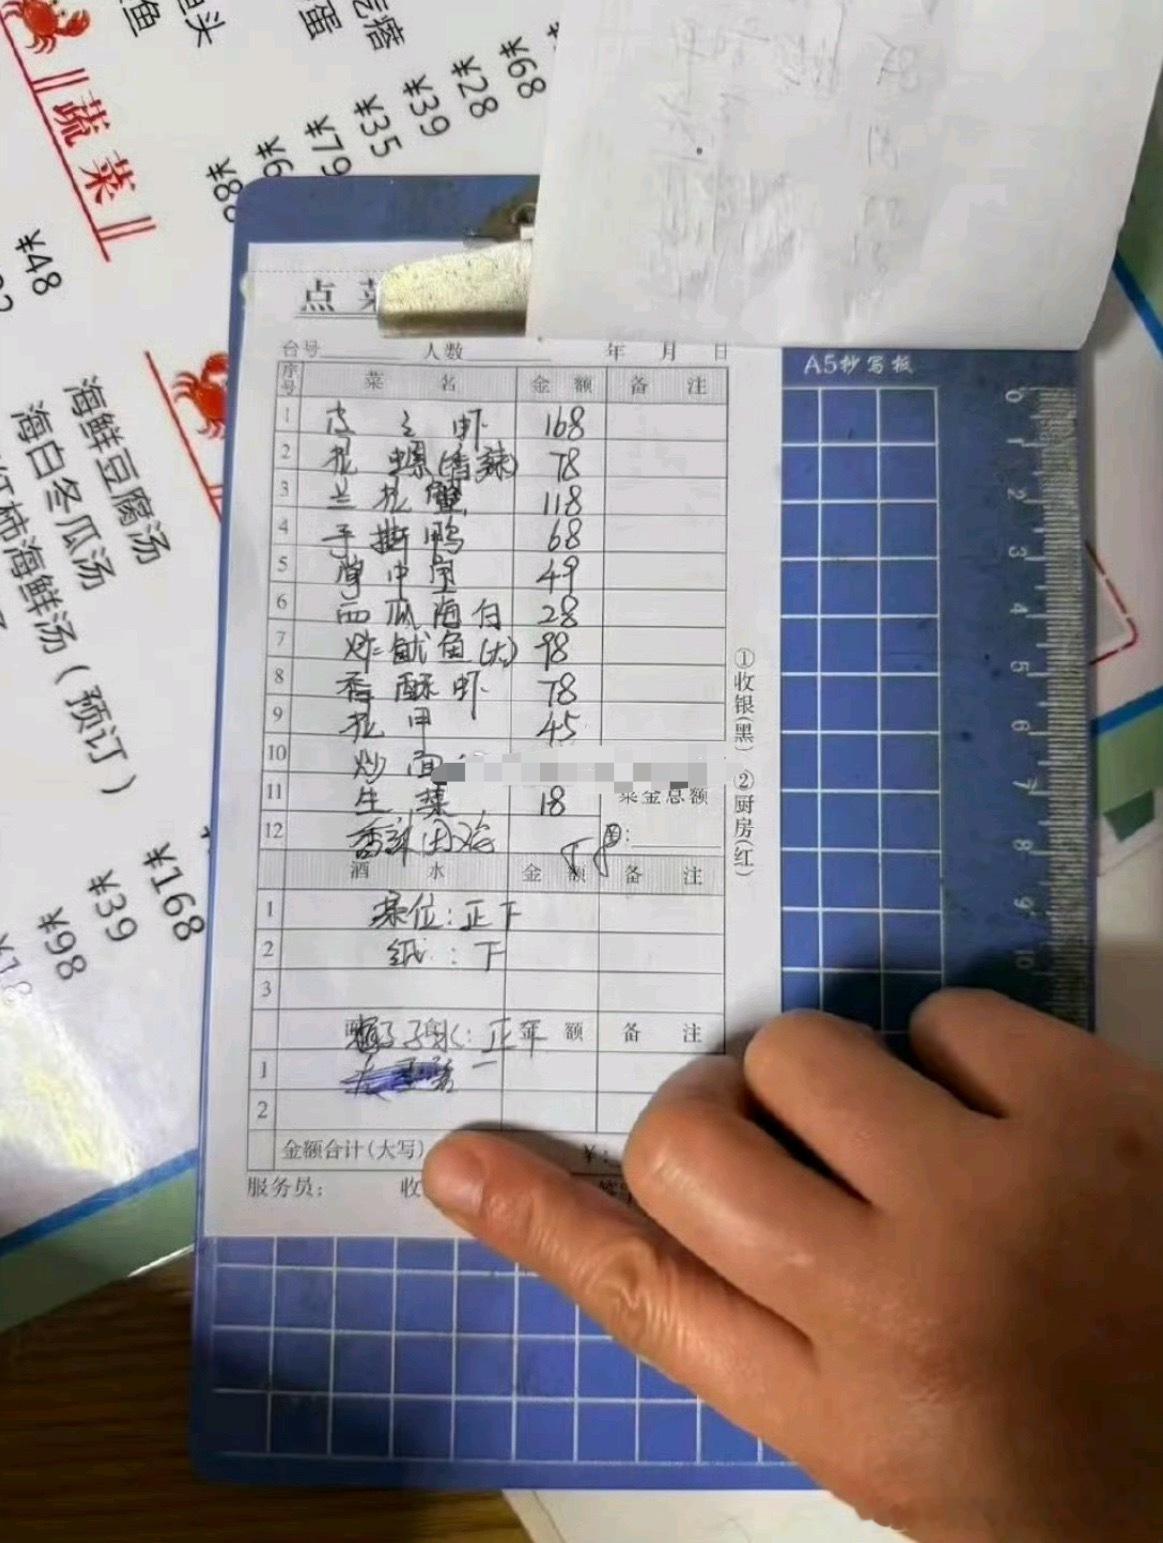 蔬菜
¥68
¥28
¥39
¥35
¥79
¥48
海鲜豆腐汤
海白冬瓜汤
海鲜汤(预订)
¥168
¥39
¥98
点菜
台号 人数 年 月 日
序号 菜 名 金 额 备 注
1 皮皮虾 168
2 扒螺(香辣) 78
3 兰扒蟹 118
4 手撕鸭 68
5 掌中宝 49
6 西瓜海白 28
7 炸鱿鱼(大) 98
8 香酥虾 78
9 扒甲 45
10 炒面
11 生菜 18 菜金总额
12 香辣田 ¥:
酒 水 金 额 备 注
1 茶位:正下
2 纸:下
3
水:正 金 额 备 注
1
2
金额合计(大写) ¥:
服务员: 收
①收银(黑) ②厨房(红)
A5抄写板
0
1
2
3
4
5
6
7
8
9
10